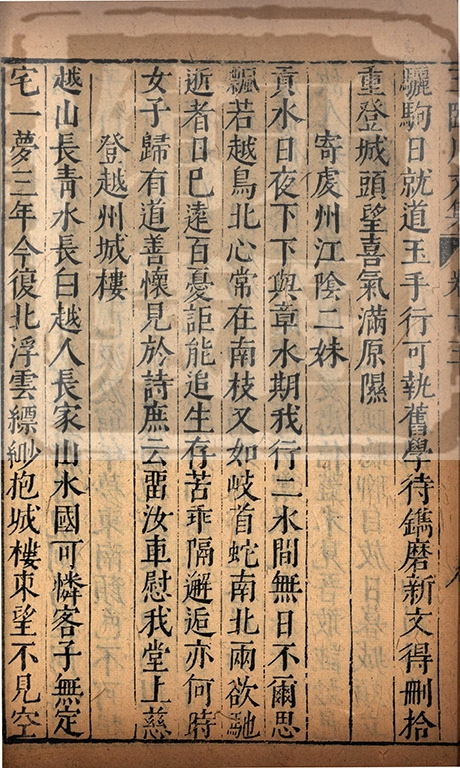 王臨川文集 卷十三 八
驪駒日就道玉手行可執舊學待鐫磨新文得刪拾
重登城頭望喜氣滿原隰
寄虔州江陰二妹
貢水日夜下下與章水期我行二水間無日不爾思
飄若越鳥北心常在南枝又如岐首蛇南北兩欲馳
逝者日已遠百憂詎能追生存苦乖隔邂逅亦何時
女子歸有道善懷見於詩庶云畱汝車慰我堂上慈
登越州城樓
越山長青水長白越人長家山水國可憐客子無定
宅一夢三年今復北浮雲縹緲抱城樓東望不見空